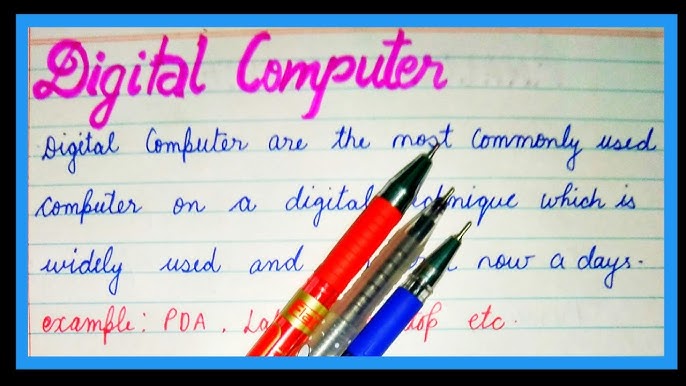 Digital Computer
Digital Computer are the most commonly used
computer on a digital which is
widely used and now a days.
example: PDA, etc.